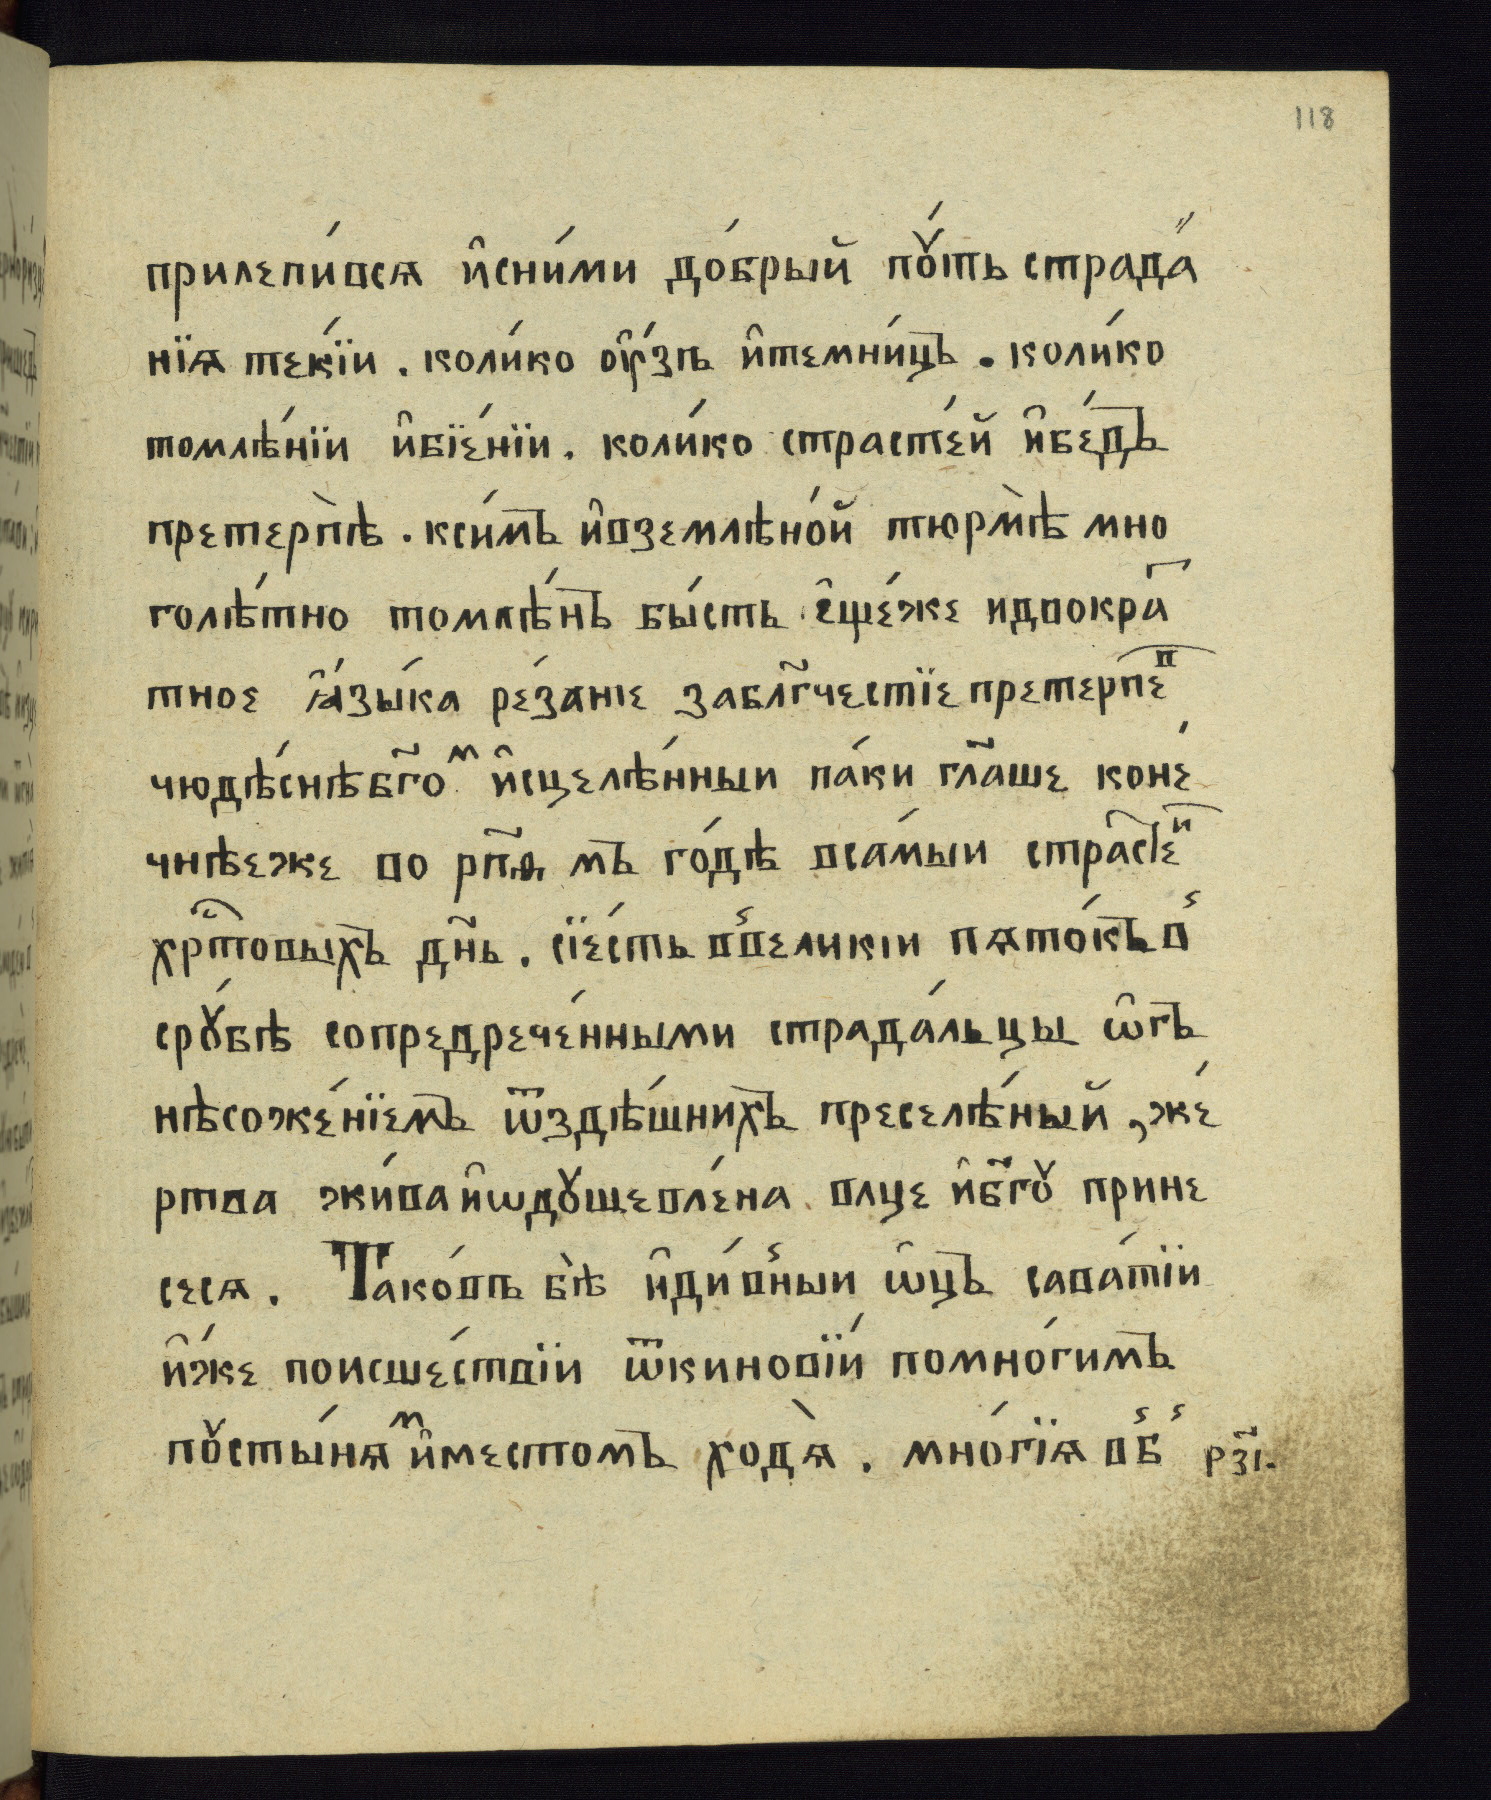 118
прилепи́всѧ и҆сни́ми до́брый пꙋ́ть страда́
нїѧ теќїи . коли́ко оу҆́зъ и҆темни́цъ . коли́ко
томлѣ́нїи и҆бїе́нїи . коли́ко страсте́й и҆бе́дъ
претерпѣ̀ . ксимъ и҆вземлѣно́й тюрмѣ̀ мно
голѣ́тно томлѣ́нъ бы́сть . є҆ще́же идвокра́
тное ꙗ҆зы́ка ре́зание заблг҃честїе претерпеⷡ
чюдѣ́снѣ бг҃оⷨ и҆сцелѣ́нныи па́ки гл҃аше коне́
чнѣеже во рп҃ѧ мъ го́дѣ вса́мыи страсⷭ҇еⷩ
хрⷭ҇товыхъ дн҃ь . сїе́сть вⸯвеликіи пѧто́къ вⸯ
срꙋ́бѣ сопредрече́нными страда́льцы ѡ҆гъ
нѣсожже́нїемъ ѿздѣ́шнихъ преселѣ́ный , же́
ртва жи́ва и҆ѡдꙋшевле́на влце и҆бг҃ꙋ прине
сесѧ . Тако́въ бѣ̀ и҆ди́вⸯныи ѡ҆ц҃ъ сава́тїи
и҆́же поисше́ствїи ѿкиновїи́ помно́гимъ
пꙋсты́нѧⷨ и҆местомъ ходѧ̀ . мно́гїѧ вⸯбⸯ
рз҃і.